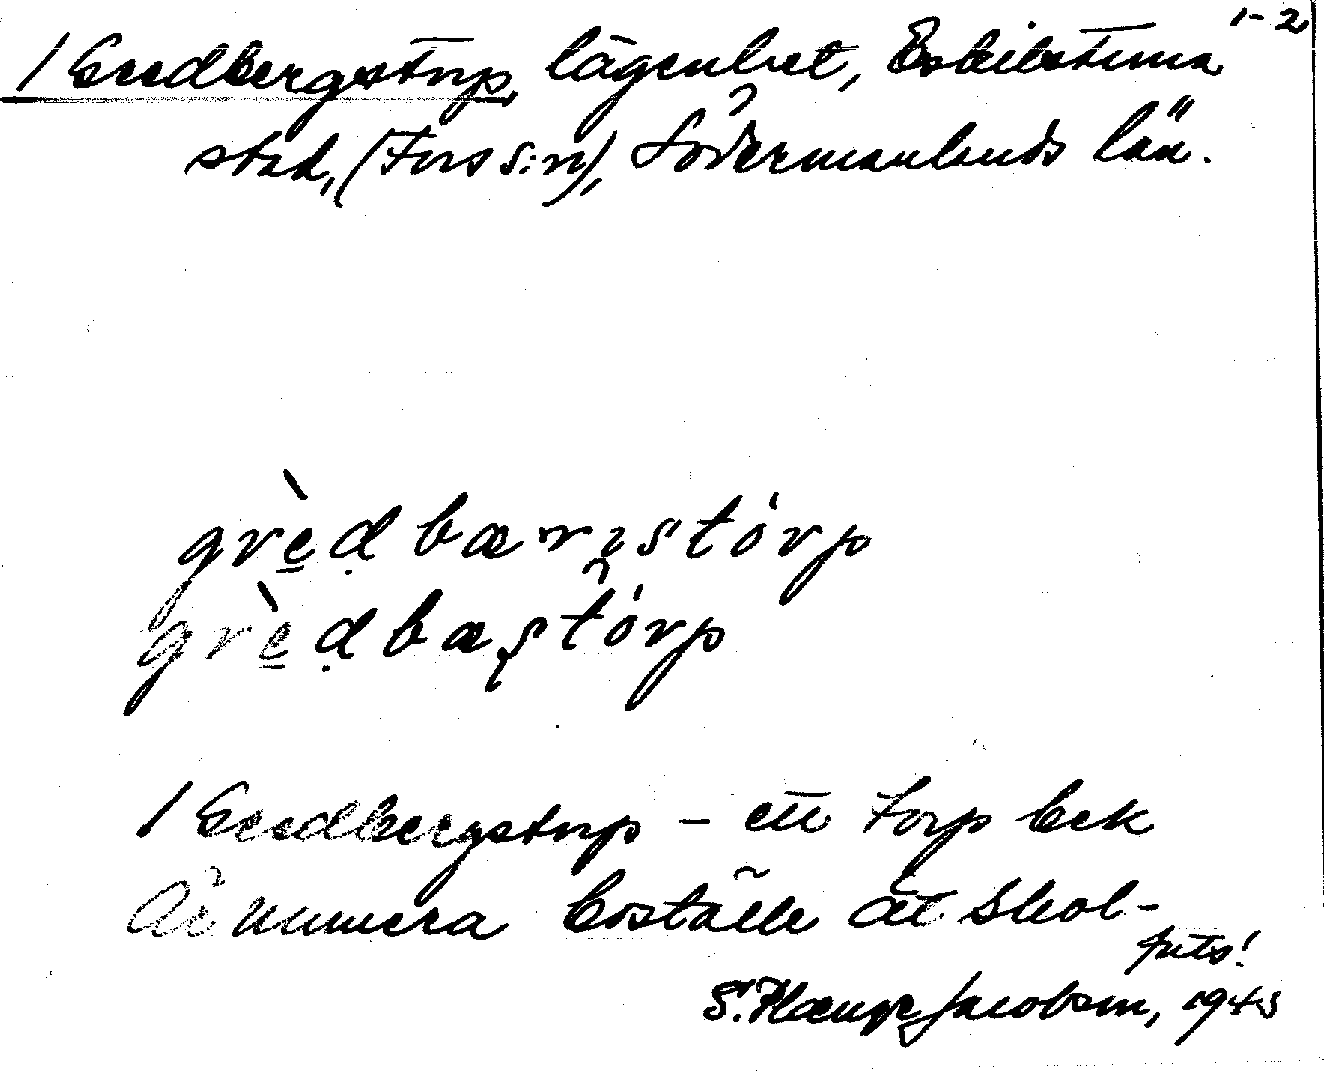 1-2
/ Gredbergstorp, lägenhet, Eskilstuna
stad, (Fors s:n), Södermanlands län.
grèdbærıstórp
grèdbæştórp
/ Gredbergstorp – ett torp
Är numera boställe åt skol-
fets!
S. Hænge Jacobsen, 1945